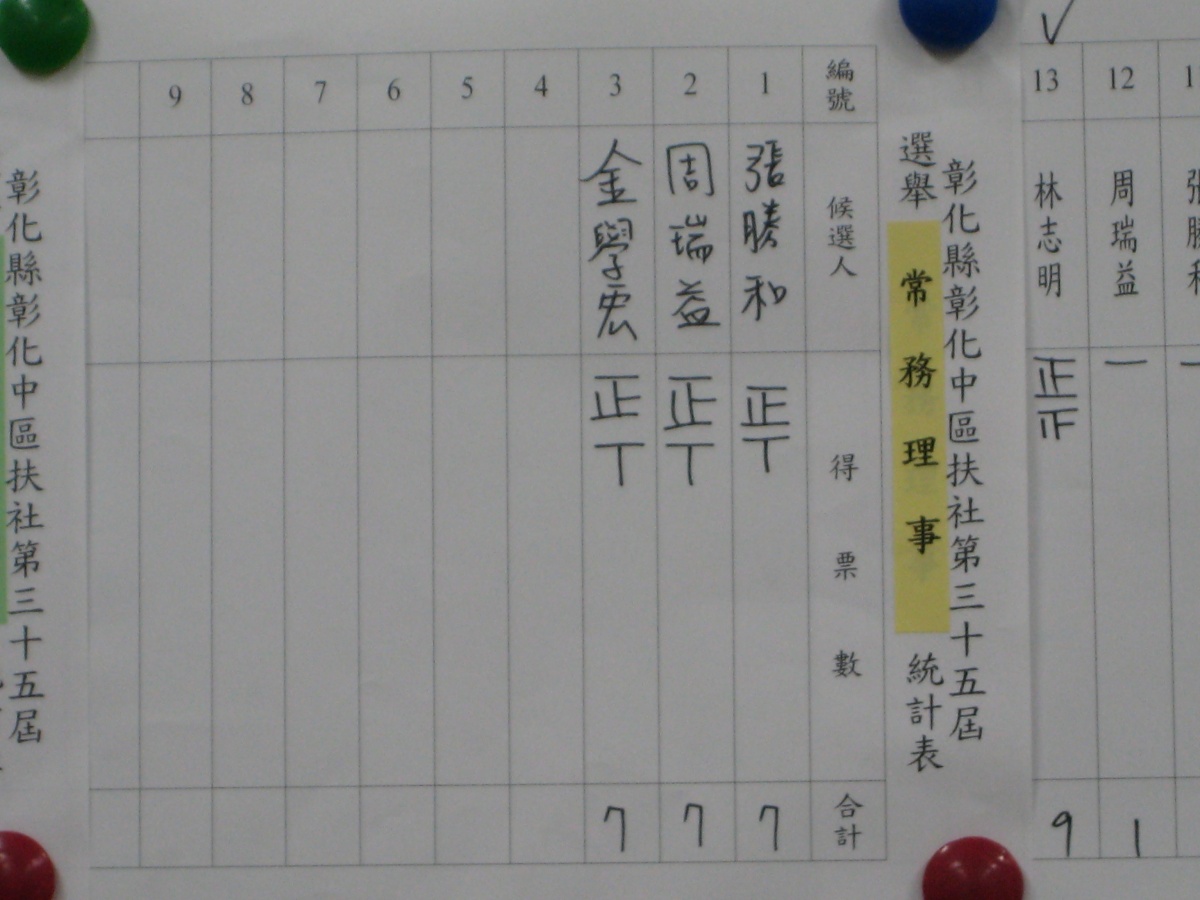 ✓
13
12
林志明
周瑞益
正正
一
一
9
1
彰化縣彰化中區扶社第三十五屆
選舉常務理事統計表
編號
候選人
得票數
合計
1
張勝和
正丅
7
2
周瑞益
正丅
7
3
金學宏
正丅
7
4
5
6
7
8
9
彰化縣彰化中區扶社第三十五屆